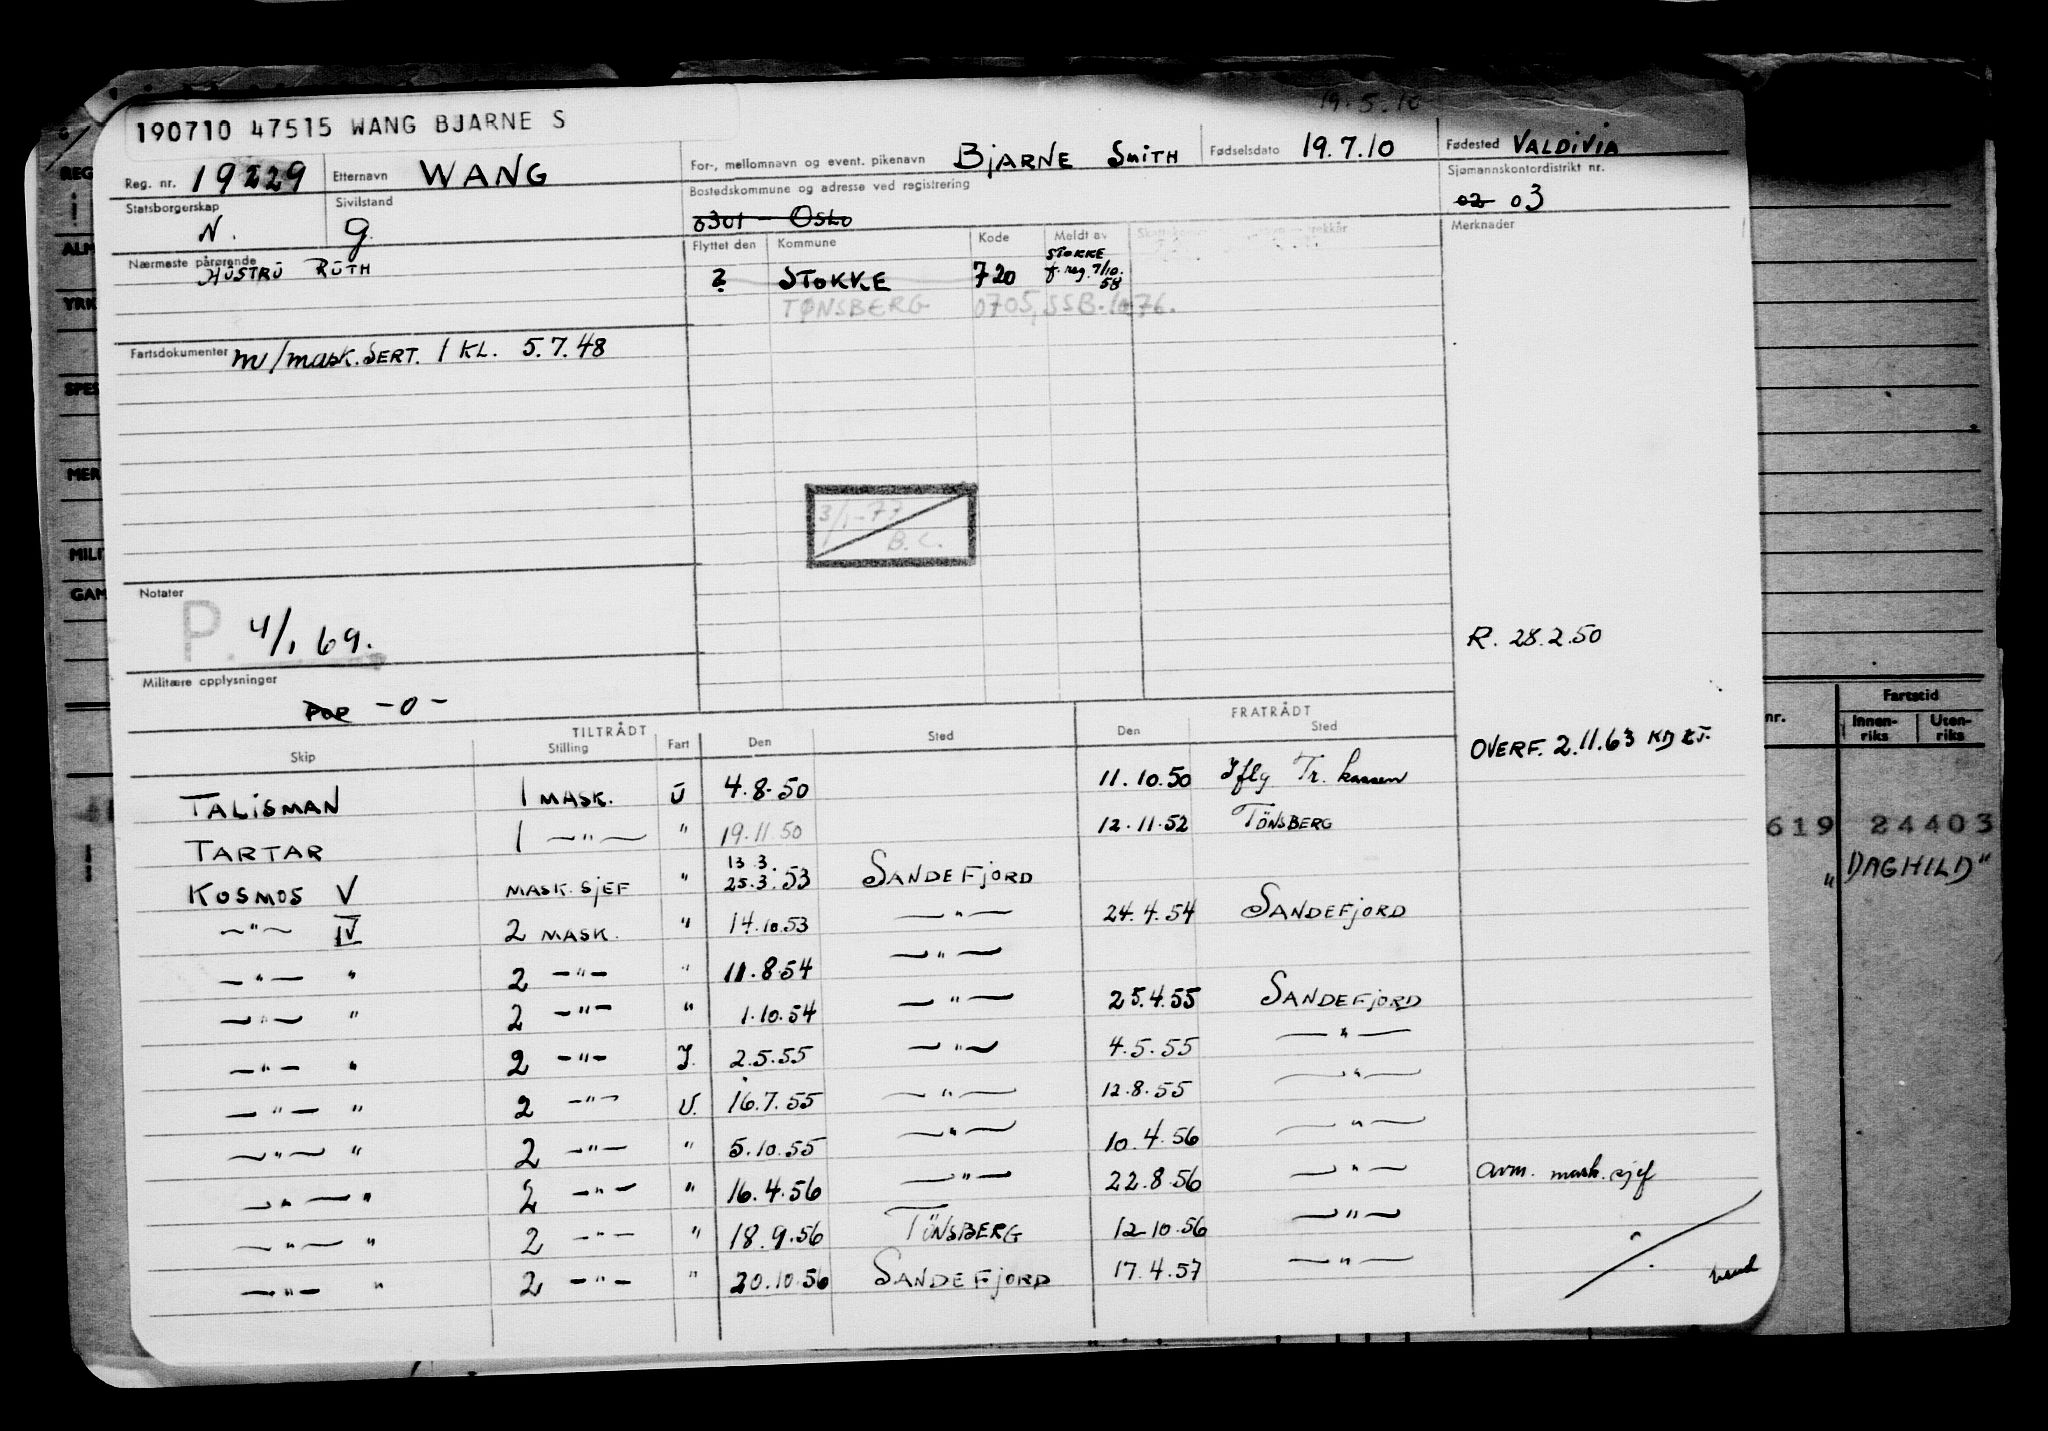 19.5.10
190710 47515 WANG BJARNE S
Reg. nr. 19229 Etternavn WANG For-, mellomnavn og event. pikenavn BJARNE SMITH Fødselsdato 19.7.10 Fødested VALDIVIA
Statsborgerskap N. Sivilstand G. Bostedskommune og adresse ved registrering 0301 - OSLO Sjømannskontordistrikt nr. 02 03
Nærmeste pårørende HUSTRU RUTH
Flyttet den Kommune Kode Meldt av Merknader
? STOKKE 720 STOKKE f. reg. 7/10. 58
TØNSBERG 0705, SSB. 10.76.
Fartsdokumenter m/mask. SERT. 1 KL. 5.7.48
3/1-77
B.C.
Notater
P. 4/1 69.
R. 28.2.50
Militære opplysninger
POR -0-
OVERF. 2.11.63
TILTRÅDT FRATRÅDT
Skip Stilling Fart Den Sted Den Sted
TALISMAN 1 MASK. U 4.8.50 11.10.50 Tr. kassen
TARTAR 1 —"— " 19.11.50 12.11.52 TÖNSBERG
KOSMOS V MASK. SJEF " 13.3. 25.3.53 SANDEFJORD
—"— IV 2 MASK. " 14.10.53 —"— 24.4.54 SANDEFJORD
—"— " 2 —"— " 11.8.54 —"—
—"— " 2 —"— " 1.10.54 —"— 25.4.55 SANDEFJORD
—"— " 2 —"— I. 2.5.55 —"— 4.5.55 —"—
—"— " 2 —"— U. 16.7.55 —"— 12.8.55 —"—
—"— " 2 —"— " 5.10.55 —"— 10.4.56 —"—
—"— " 2 —"— " 16.4.56 —"— 22.8.56 —"— avm. mask.sjef
—"— " 2 —"— " 18.9.56 TÖNSBERG 12.10.56 —"—
—"— " 2 —"— " 20.10.56 SANDEFJORD 17.4.57 —"—
REG
ALM
YRK
SPES
MER
MILI
GAM
nr. Fartstid
Innen-riks Uten-riks
619 24403
"DAGHILD"